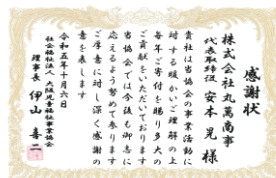 感謝状
株式会社丸萬商事
代表取締役 安本 晃 様
貴社は当協会の事業活動に
対する暖かいご理解の上
毎年ご寄付を賜り多大の
ご貢献をいただいております
当協会では今後とも御志に
応えるよう努めて参ります
ご厚意に対し深く感謝の
意を表します
令和五年十月六日
社会福祉法人 大阪児童福祉事業協会
理事長 伊山 喜二